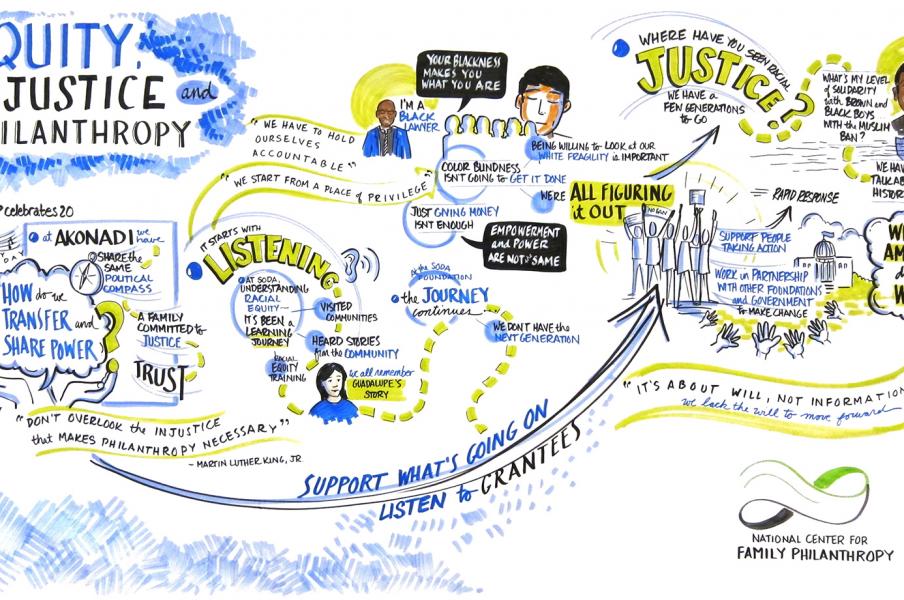 QUITY,
JUSTICE and
ILANTHROPY
celebrates 20
at AKONADI we
have
SHARE the
SAME
POLITICAL
COMPASS
HOW do we
TRANSFER and
SHARE POWER
?
A FAMILY
COMMITTED to
JUSTICE
TRUST
"DON'T OVERLOOK the INJUSTICE
that MAKES PHILANTHROPY NECESSARY"
- MARTIN LUTHER KING, JR.
"WE HAVE TO HOLD
OURSELVES
ACCOUNTABLE"
"WE START FROM A PLACE of PRIVILEGE"
I'M A
BLACK
LAWYER
YOUR BLACKNESS
MAKES YOU
WHAT YOU ARE
BEING WILLING to LOOK at OUR
WHITE FRAGILITY is IMPORTANT
COLOR BLINDNESS
ISN'T GOING to GET IT DONE
WE'RE ALL FIGURING
it OUT
JUST GIVING MONEY
ISN'T ENOUGH
EMPOWERMENT
and POWER
ARE NOT the SAME
IT STARTS WITH
LISTENING
AT SODA,
UNDERSTANDING
RACIAL
EQUITY—
IT'S BEEN a
LEARNING
JOURNEY
VISITED
COMMUNITIES
HEARD STORIES
from the COMMUNITY
RACIAL
EQUITY
TRAINING
we all remember
GUADALUPE'S
STORY
At the SODA
FOUNDATION
the JOURNEY
continues
WE DON'T HAVE the
NEXT GENERATION
SUPPORT WHAT'S GOING ON
LISTEN to GRANTEES
WHERE HAVE YOU SEEN RACIAL
JUSTICE?
WE HAVE a
FEW GENERATIONS
to GO
WHAT'S MY LEVEL
of SOLIDARITY
with BROWN and
BLACK BOYS
WITH the MUSLIM
BAN?
WE HAV
TALK AB
HISTOR
RAPID RESPONSE
SUPPORT PEOPLE
TAKING ACTION
WORK in PARTNERSHIP
WITH OTHER FOUNDATIONS
and GOVERNMENT
to MAKE CHANGE
"IT'S ABOUT WILL, NOT INFORMATION
we lack the will to move forward
NATIONAL CENTER FOR
FAMILY PHILANTHROPY